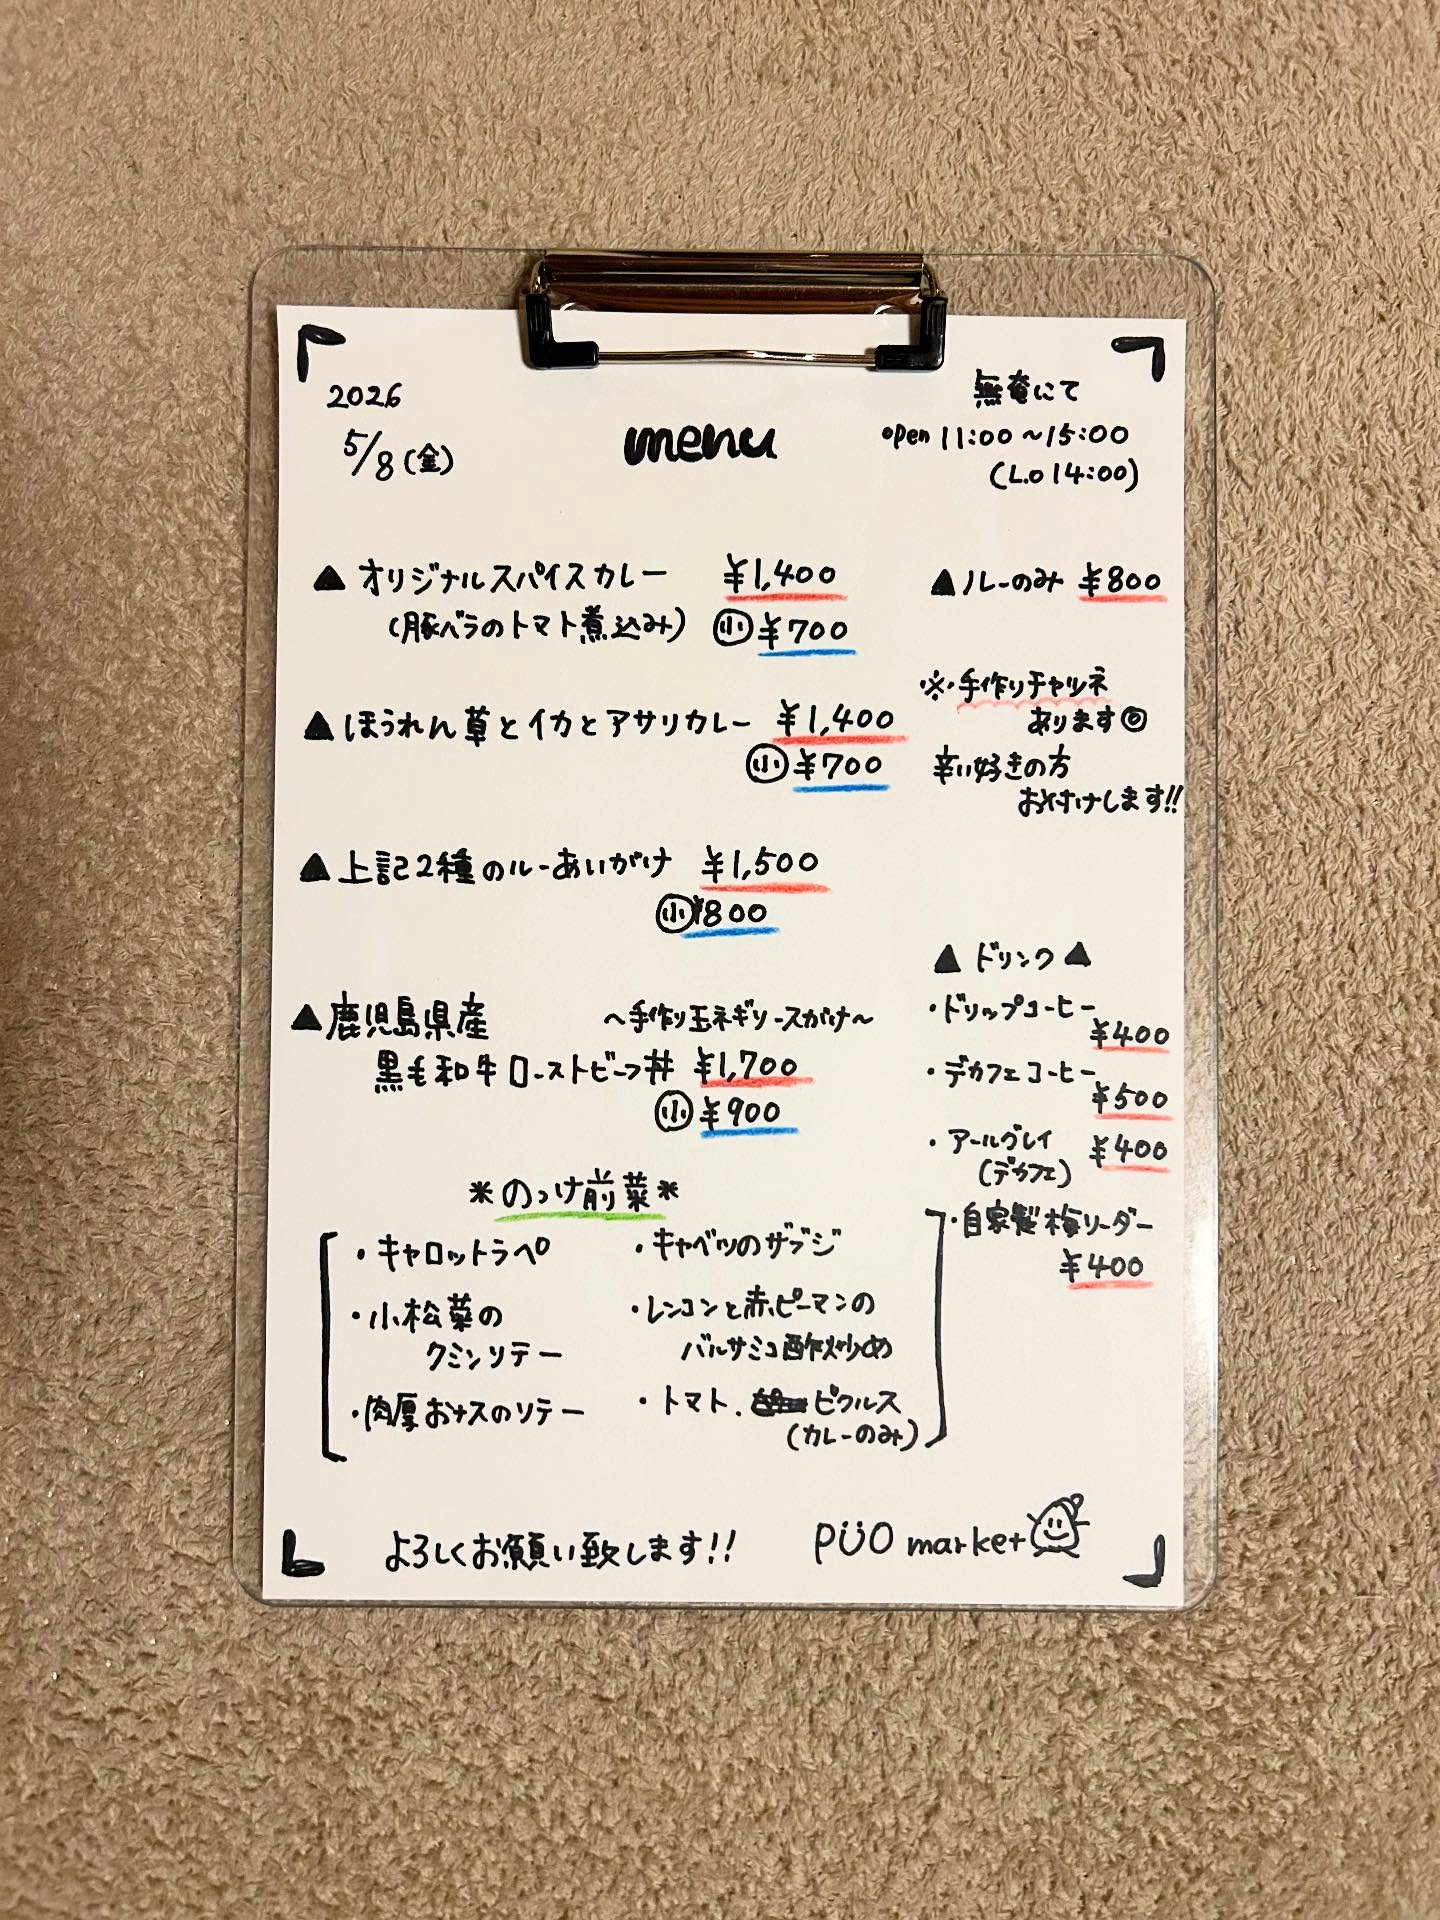 2026
5/8(金)
menu
無庵にて
open 11:00〜15:00
(L.o 14:00)
▲オリジナルスパイスカレー ¥1,400
(豚バラのトマト煮込み) ㊤小 ¥700
▲ほうれん草とイカとアサリカレー ¥1,400
小 ¥700
▲上記2種のルーあいがけ ¥1,500
小 ¥800
▲鹿児島県産 〜手作り玉ネギソースがけ〜
黒毛和牛ローストビーフ丼 ¥1,700
小 ¥900
▲ルーのみ ¥800
※手作りチャツネ
あります◎
辛い好きの方
お付けします!!
▲ドリンク▲
・ドリップコーヒー
¥400
・デカフェコーヒー
¥500
・アールグレイ ¥400
(デカフェ)
・自家製梅ソーダー
¥400
*のっけ前菜*
・キャロットラペ
・小松菜の
クミンソテー
・肉厚おナスのソテー
・キャベツのサブジ
・レンコンと赤ピーマンの
バルサミコ酢炒め
・トマト.ピクルス
(カレーのみ)
よろしくお願い致します!!
PÜO market